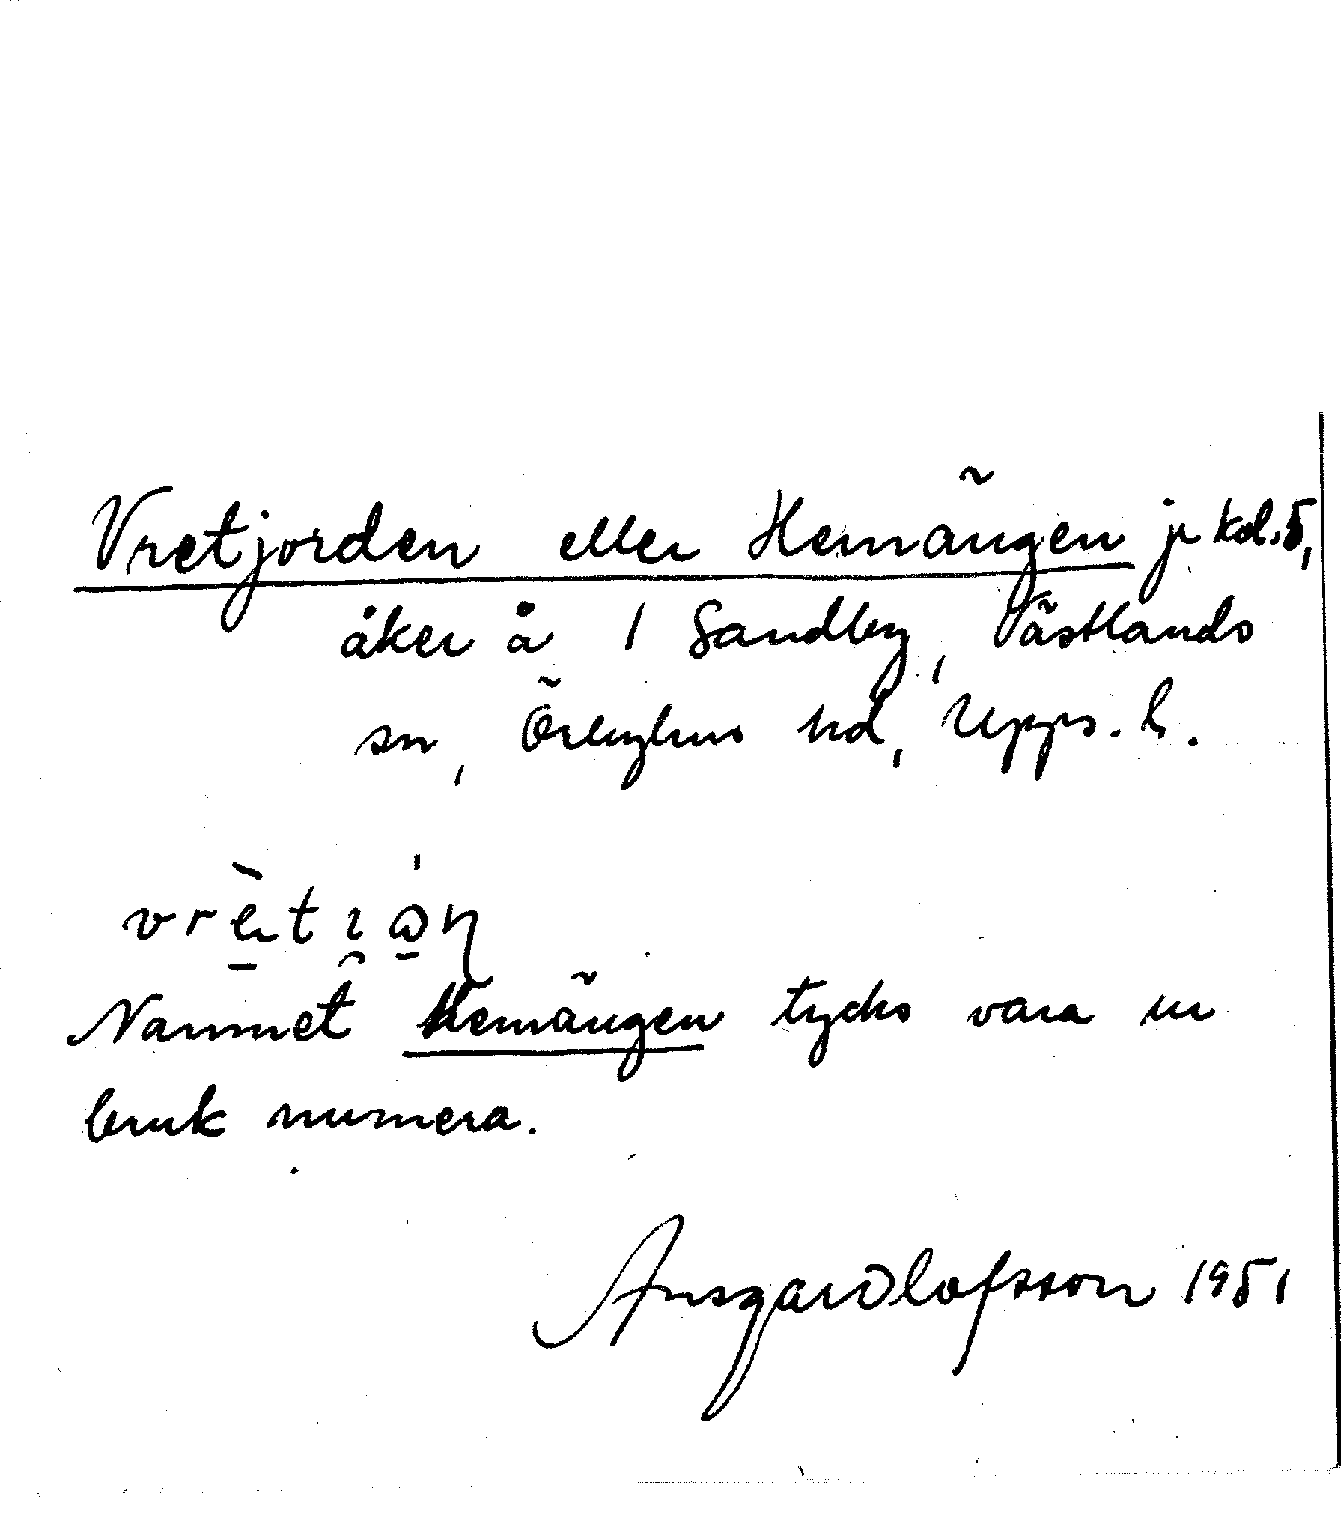 Vretjorden eller Hemängen jr kd. 5,
åker å 1 Sandby, Västlands
sn, Örbyhus hd, Upps. l.
vrètiǫn
Namnet Hemängen tycks vara ur
bruk numera.
Ansgar Olofsson 1951